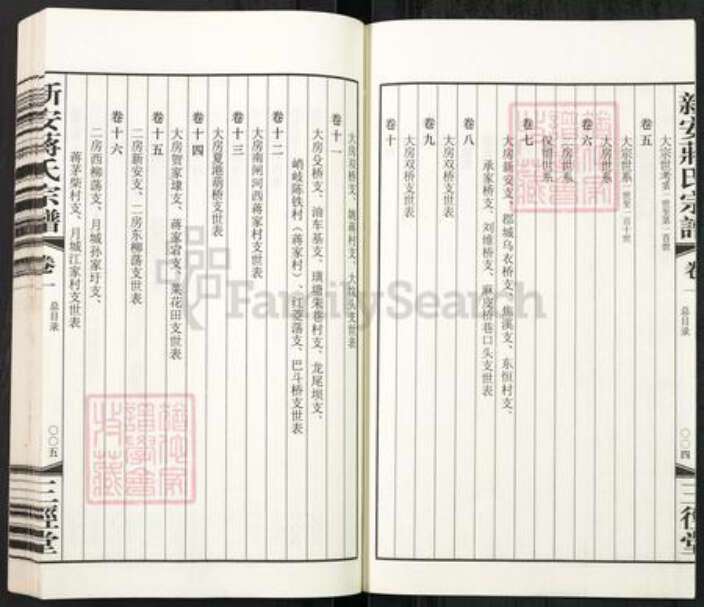 新安蔣氏宗譜
卷一
总目录
〇〇四
三徑堂
大宗世考第一世至第一百世
卷五
大宗世系一世至一百十世
大房世系
卷六
二房世系
保留世系
卷七
大房新安支、郡城乌衣桥支、焦溪支、东恒村支、
承家桥支、刘维桥支、麻皮桥巷口头支世表
卷八
大房双桥支世表
卷九
大房双桥支世表
卷十
大房双桥支、姚蒋村支、大坟头支世表
卷十一
大房殳桥支、油车基支、璜塘朱巷村支、龙尾坝支、
峭岐陈铁村（蒋家村）、红菱荡支、巴斗桥支世表
卷十二
大房南闸河西蒋家村支世表
卷十三
大房夏港葫桥支世表
卷十四
大房贺家埭支、蒋家宕支、菜花田支世表
卷十五
二房新安支、二房东柳荡支世表
卷十六
二房西柳荡支、月城孙家圩支、
蒋茅柴村支、月城江家村支世表
新安蒋氏宗谱
卷一
总目录
〇〇五
三徑堂
FamilySearch